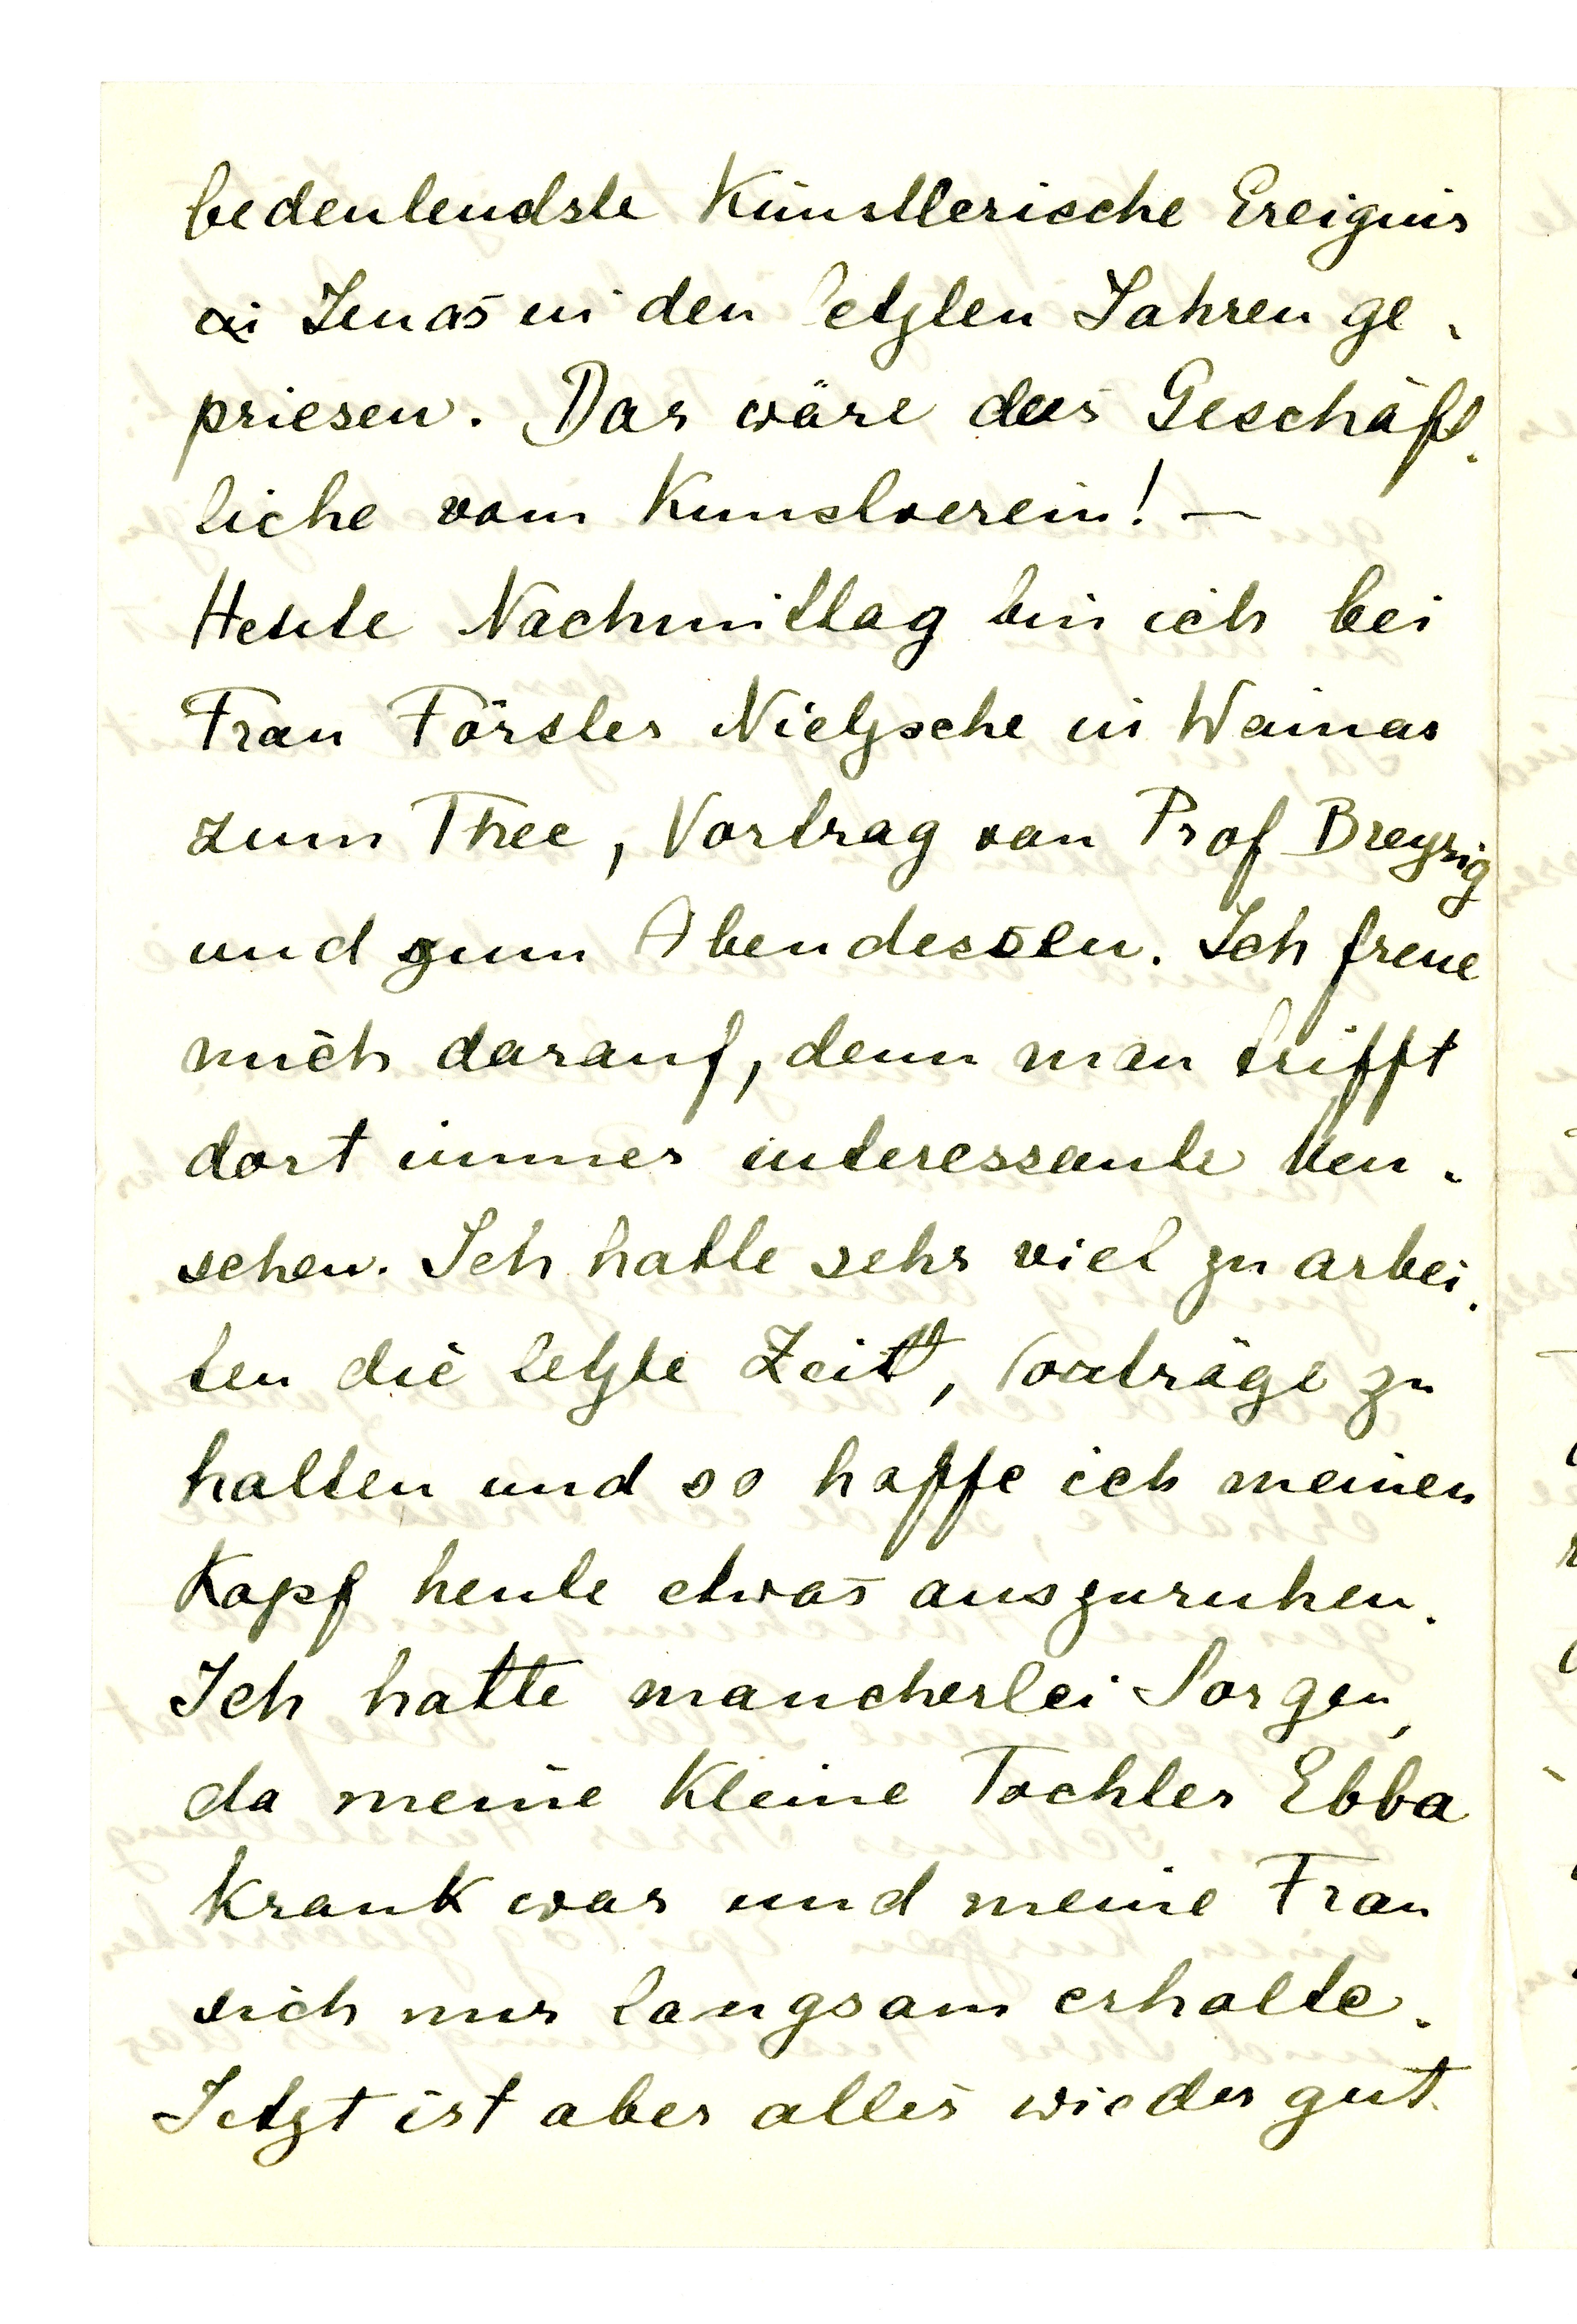 bedeutendste künstlerische Ereignis
Jenas in den letzten Jahren ge-
priesen. Das wäre das Geschäft-
liche vom Kunstverein! —
Heute Nachmittag bin ich bei
Frau Förster Nietzsche in Weimar
zum Thee, Vortrag von Prof Breysig
und zum Abendessen. Ich freue
mich darauf, denn man trifft
dort immer interessante Men-
schen. Ich hatte sehr viel zu arbei-
ten die letzte Zeit, Vorträge zu
halten und so hoffe ich meinen
Kopf heute etwas auszuruhen.
Ich hatte mancherlei Sorgen,
da meine kleine Tochter Ebba
krank war und meine Frau
sich nur langsam erholte.
Jetzt ist aber alles wieder gut.